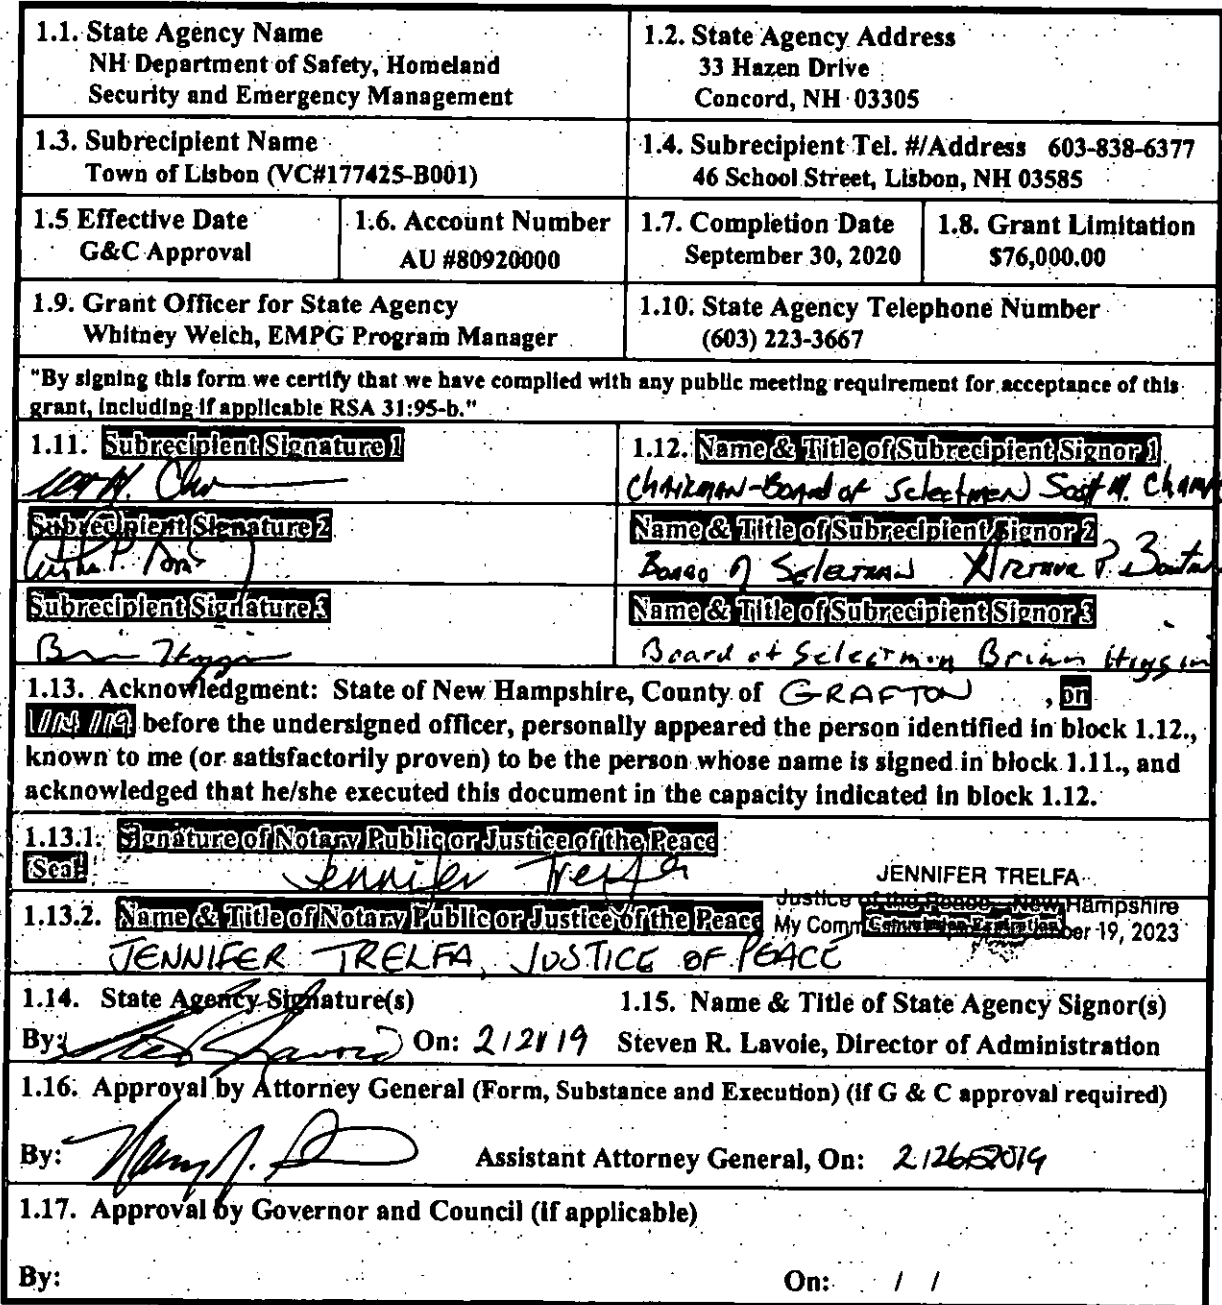 1.1. State Agency Name
NH Department of Safety, Homeland
Security and Emergency Management
1.2. State Agency Address
33 Hazen Drive
Concord, NH 03305
1.3. Subrecipient Name
Town of Lisbon (VC#177425-B001)
1.4. Subrecipient Tel. #/Address 603-838-6377
46 School Street, Lisbon, NH 03585
1.5 Effective Date
G&C Approval
1.6. Account Number
AU #80920000
1.7. Completion Date
September 30, 2020
1.8. Grant Limitation
$76,000.00
1.9. Grant Officer for State Agency
Whitney Welch, EMPG Program Manager
1.10. State Agency Telephone Number
(603) 223-3667
"By signing this form we certify that we have complied with any public meeting requirement for acceptance of this
grant, including if applicable RSA 31:95-b."
1.11. Subrecipient Signature 1
1.12. Name & Title of Subrecipient Signor 1
CHAIRMAN-Board of Selectmen Scott M.
Subrecipient Signature 2
Name & Title of Subrecipient Signor 2
Board of
Subrecipient Signature 3
Name & Title of Subrecipient Signor 3
Board of Selectmen Brian
1.13. Acknowledgment: State of New Hampshire, County of GRAFTON , on
before the undersigned officer, personally appeared the person identified in block 1.12.,
known to me (or satisfactorily proven) to be the person whose name is signed in block 1.11., and
acknowledged that he/she executed this document in the capacity indicated in block 1.12.
1.13.1. Signature of Notary Public or Justice of the Peace
Seal:
Jennifer Trelfa
JENNIFER TRELFA
Justice of the Peace - New Hampshire
1.13.2. Name & Title of Notary Public or Justice of the Peace
My Comm ber 19, 2023
JENNIFER TRELFA, JUSTICE OF PEACE
1.14. State Agency Signature(s)
1.15. Name & Title of State Agency Signor(s)
By: On: 2/21/19 Steven R. Lavoie, Director of Administration
1.16. Approval by Attorney General (Form, Substance and Execution) (if G & C approval required)
By: Assistant Attorney General, On: 2/26/2019
1.17. Approval by Governor and Council (if applicable)
By: On: / /